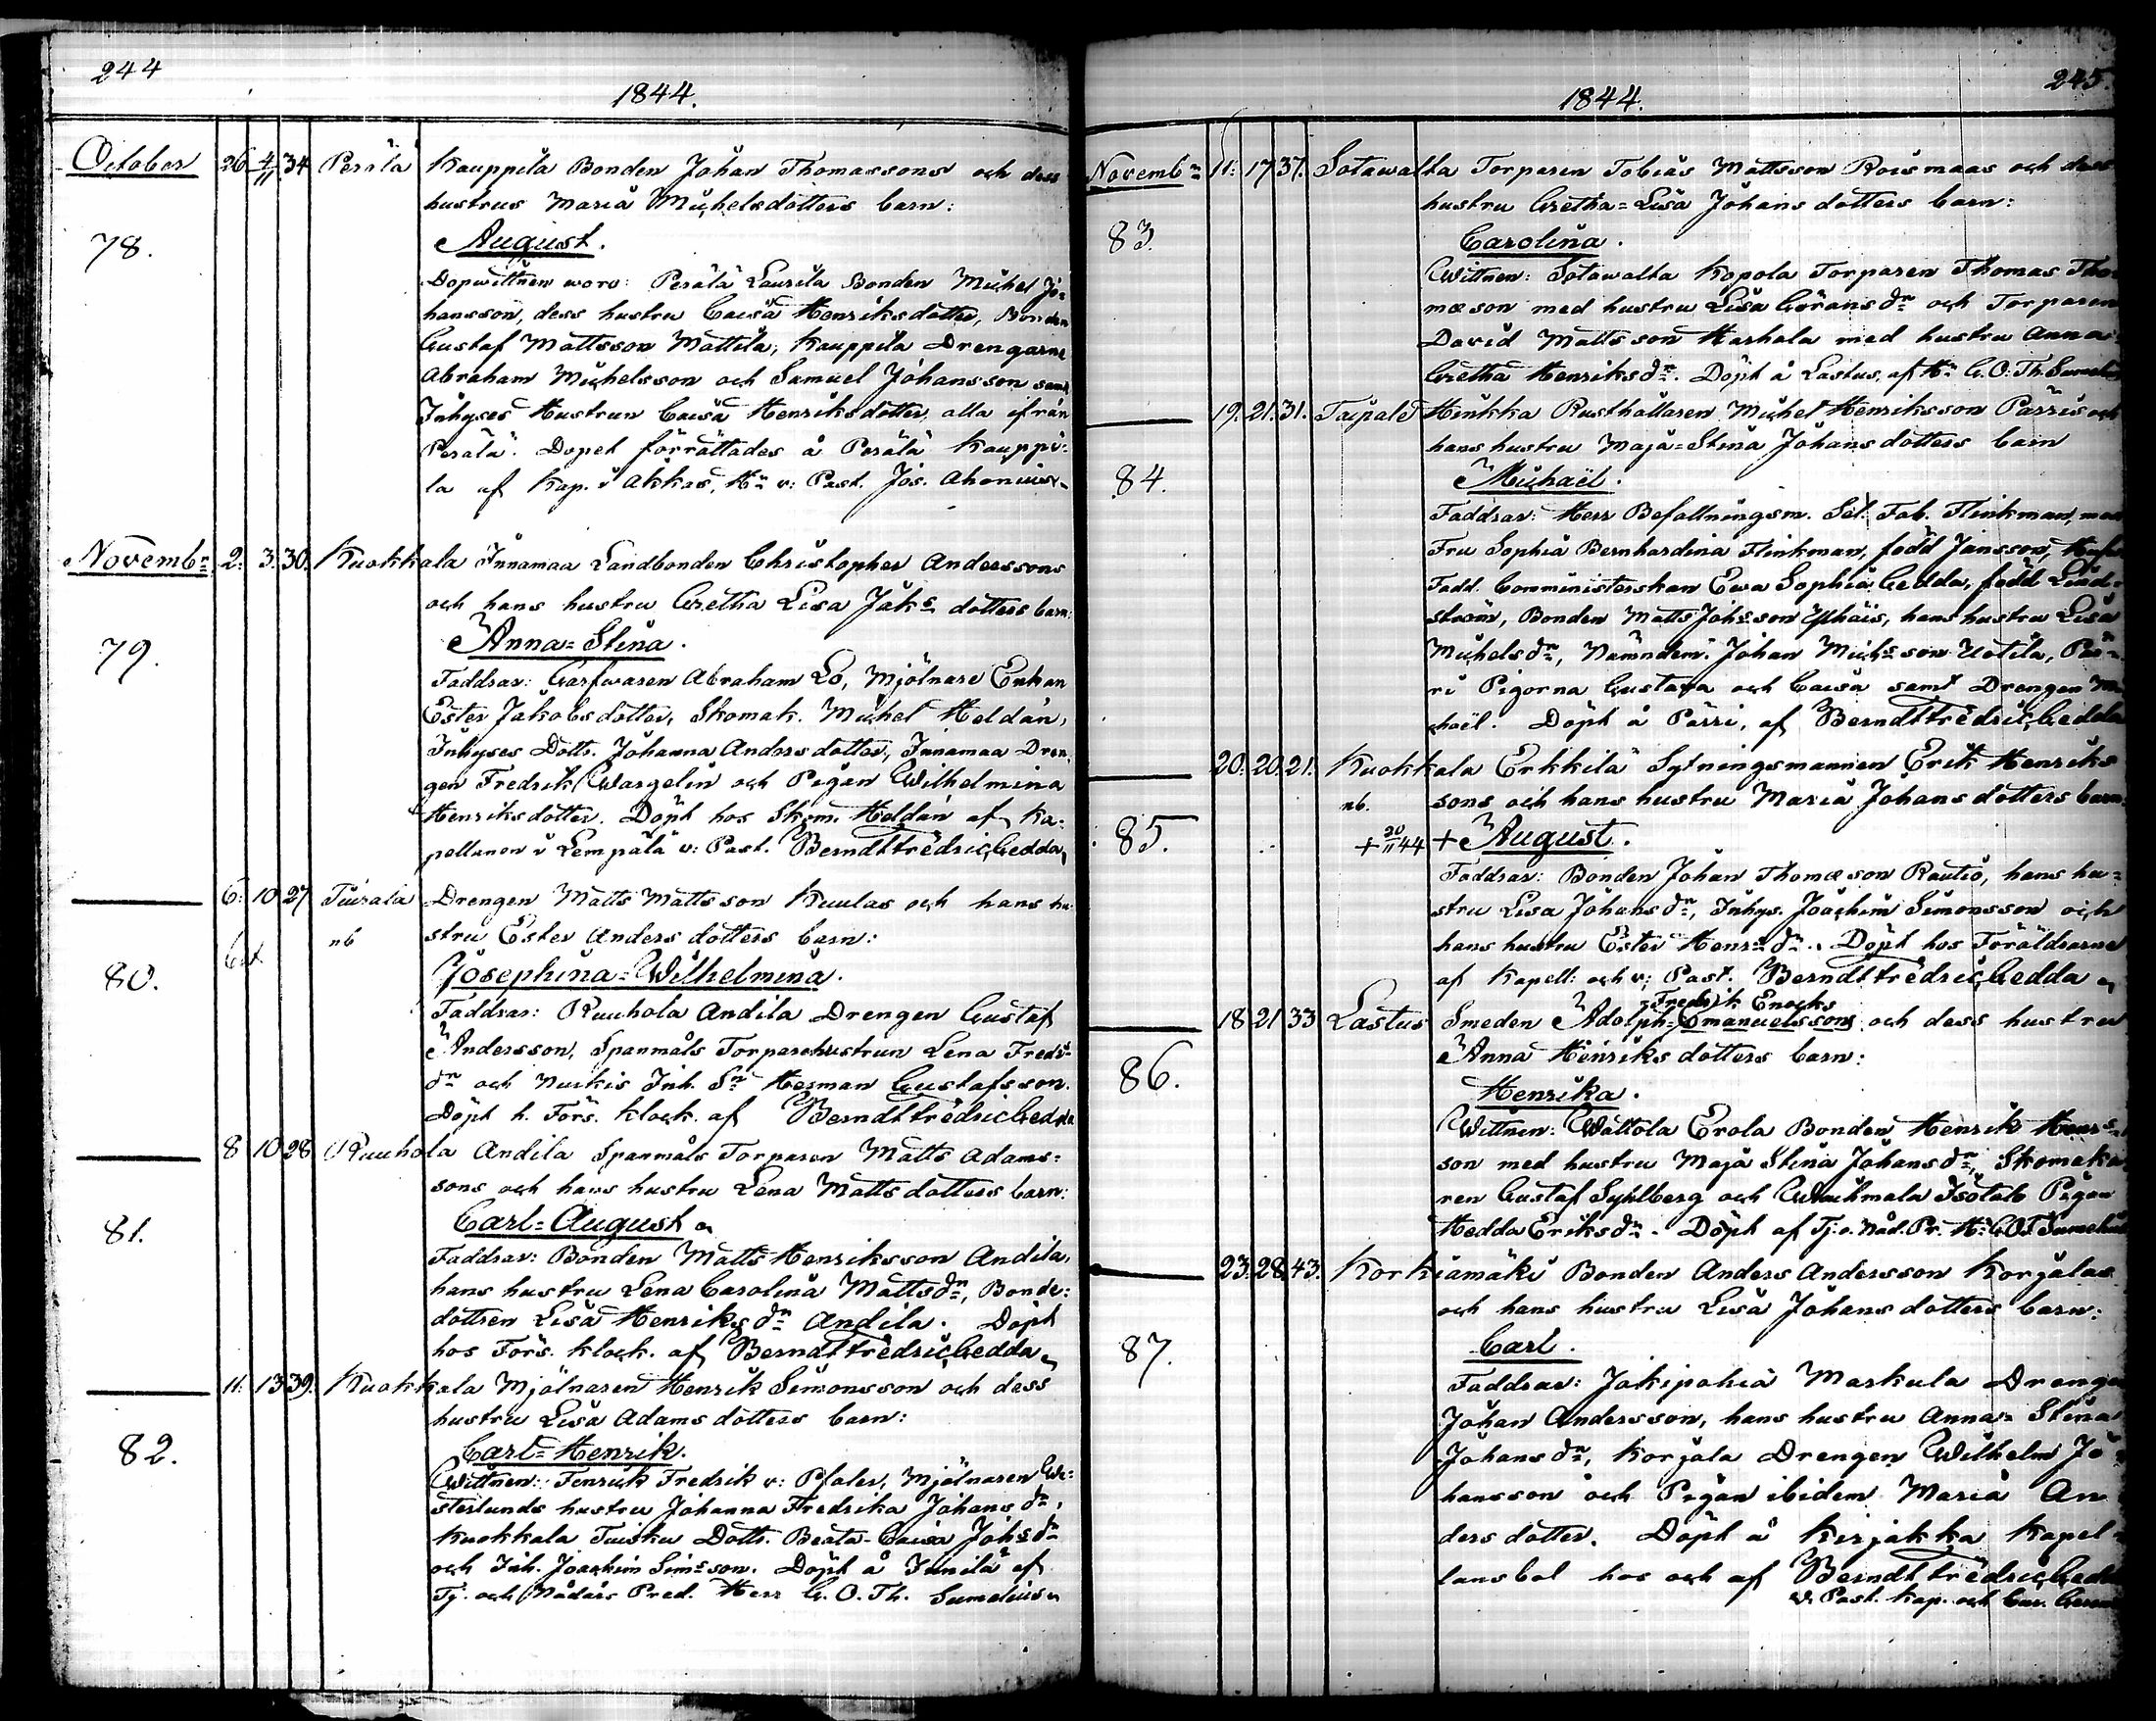 244
1844.
October 26 4/11 34 Perälä Kauppila Bonden Johan Thomassons och dess
hustrus Maria Michelsdotters barn:
78.
August.
Dopwittnen woro: Perälä Laurila Bonden Michel Jo=
hansson, dess hustru Caisa Henriksdotter, Bonden
Gustaf Mattsson Mattila, Kauppila Drengarne
Abraham Michelsson och Samuel Johansson samt
Inhyses Hustrun Caisa Henriksdotter, alla ifrån
Perälä. Dopet förrättades å Perälä Kauppi=
la af Kap. i Akkas, Hr v: Past. Jos. Ahonius
Novembr 2. 3. 30. Kuokkala Innamaa Landbonden Christopher Anderssons
och hans hustru Gretha Lisa Jaks dotters barn:
79.
Anna=Stina.
Faddrar: Garfwaren Abraham Lo, Mjölnare Enkan
Ester Jakobsdotter, Skomak. Michel Heldán,
Inhyses Dottr. Johanna Andersdotter, Innamaa Dren
gen Fredrik Wargelin och Pigan Wilhelmina
Henriksdotter. Döpt hos Skom. Heldán af Ka=
pellanen i Lempälä v: Past. Berndt Fredric Gedda
6. 10 27 Drengen Matts Mattsson Kuulas och hans hu
nb stru Ester Anders dotters barn:
80.
Josephina=Wilhelmina.
Faddrar: Ruuhola Andila Drengen Gustaf
Andersson, Spanmåls Torparehustrun Lena Fredr=
dr och Nurkis Inh. Sn Herman Gustafsson.
Döpt h. Förs. klock. af Berndt Fredric Gedda
8 10 28 Ruuhola Andila Spanmåls Torparen Matts Adams=
sons och hans hustru Lena Mattsdotters barn:
81.
Carl=August
Faddrar: Bonden Matts Henriksson Andila,
hans hustru Lena Carolina Mattsdr, Bonde=
dottren Lisa Henriksdr Andila. Döpt
hos Förs. klock. af Berndt Fredric Gedda
11. 13 39. Kuokkala Mjölnaren Henrik Simonsson och dess
hustru Lisa Adamsdotters barn:
82.
Carl=Henrik.
Wittnen: Fenrick Fredrik v: Pfaler, Mjölnaren We=
sterlunds hustru Johanna Fredrika Johans dr,
Kuokkala Tuisku Dottr. Beata=Caisa Johsdr
och Inh. Joachim Simsson. Döpt å Junila af
Tj. och Nådårs Pred. Herr G. O. Th. Sumelius
245.
1844.
Novembr 11. 17 37. Sotawalta Torparen Tobias Mattsson Roismaas och dess
hustru Gretha=Lisa Johansdotters barn:
83.
Carolina.
Wittnen: Sotawalta Kopola Torparen Thomas Tho
mæson med hustru Lisa Göransdr och Torparen
David Mattsson Harhala med hustru Anna
Gretha Henriksdr. Döpt å Lastus, af Hr G. O. Th. Sumelius
19. 21. 31. Taipale Heikka Rusthållaren Michel Henriksson Pärris och
hans hustru Maja=Stina Johansdotters barn
84.
Michaël.
Faddrar: Herr Befallningsm. Sel. Fab. Flinkman, med
Fru Sophia Bernhardina Flinkman, född Jansson,
Fadd. Comministerskan Ewa Sophia Gedda, född Lind=
ström, Bonden Matts Johsson Yphäis, hans hustru Lisa
Michelsdr, Nämndem. Johan Michsson Uotila, Pär=
ri Pigorna Gustava och Caisa samt Drengen Mi
chaël. Döpt å Pärri, af Berndt Fredric Gedda
20. 20. 21. Kuokkala Erkkilä Sytningsmannen Erik Henriks
nb. sons och hans hustru Maria Johansdotters barn:
85.
+ 20/11 44 + August.
Faddrar: Bonden Johan Thomæson Rautio, hans hu=
stru Lisa Johansdr, Inhys. Joachim Simonsson och
hans hustru Ester Henrs dr. Döpt hos Föräldrarne
af Kapell: och v: Past. Berndt Fredric Gedda
Fredrik Enocks
18 21 33 Lastus Smeden Adolph=Emanuelssons och dess hustru
Anna Henriksdotters barn:
86.
Henrika.
Wittnen: Wattola Erola Bonden Henrik Henrs=
son med hustru Maja Stina Johansdr, Skomaka
ren Gustaf Syhlberg och Isotalo Pigan
Hedda Eriksdr. Döpt af Tj. o. Nåd. Pr. Hr G. O. T. Sumelius
23. 28. 43. Korkiamäki Bonden Anders Andersson Korjalas
och hans hustru Lisa Johansdotters barn:
87.
Carl.
Faddrar: Jokipohia Markula Drengen
Johan Andersson, hans hustru Anna=Stina
Johansdr, Korjala Drengen Wilhelm Jo
hansson och Pigan ibidem Maria An
dersdotter. Döpt å Kirjakka Kapel
lansbol hos och af Berndt Fredric Gedda
v. Past. Kap. och